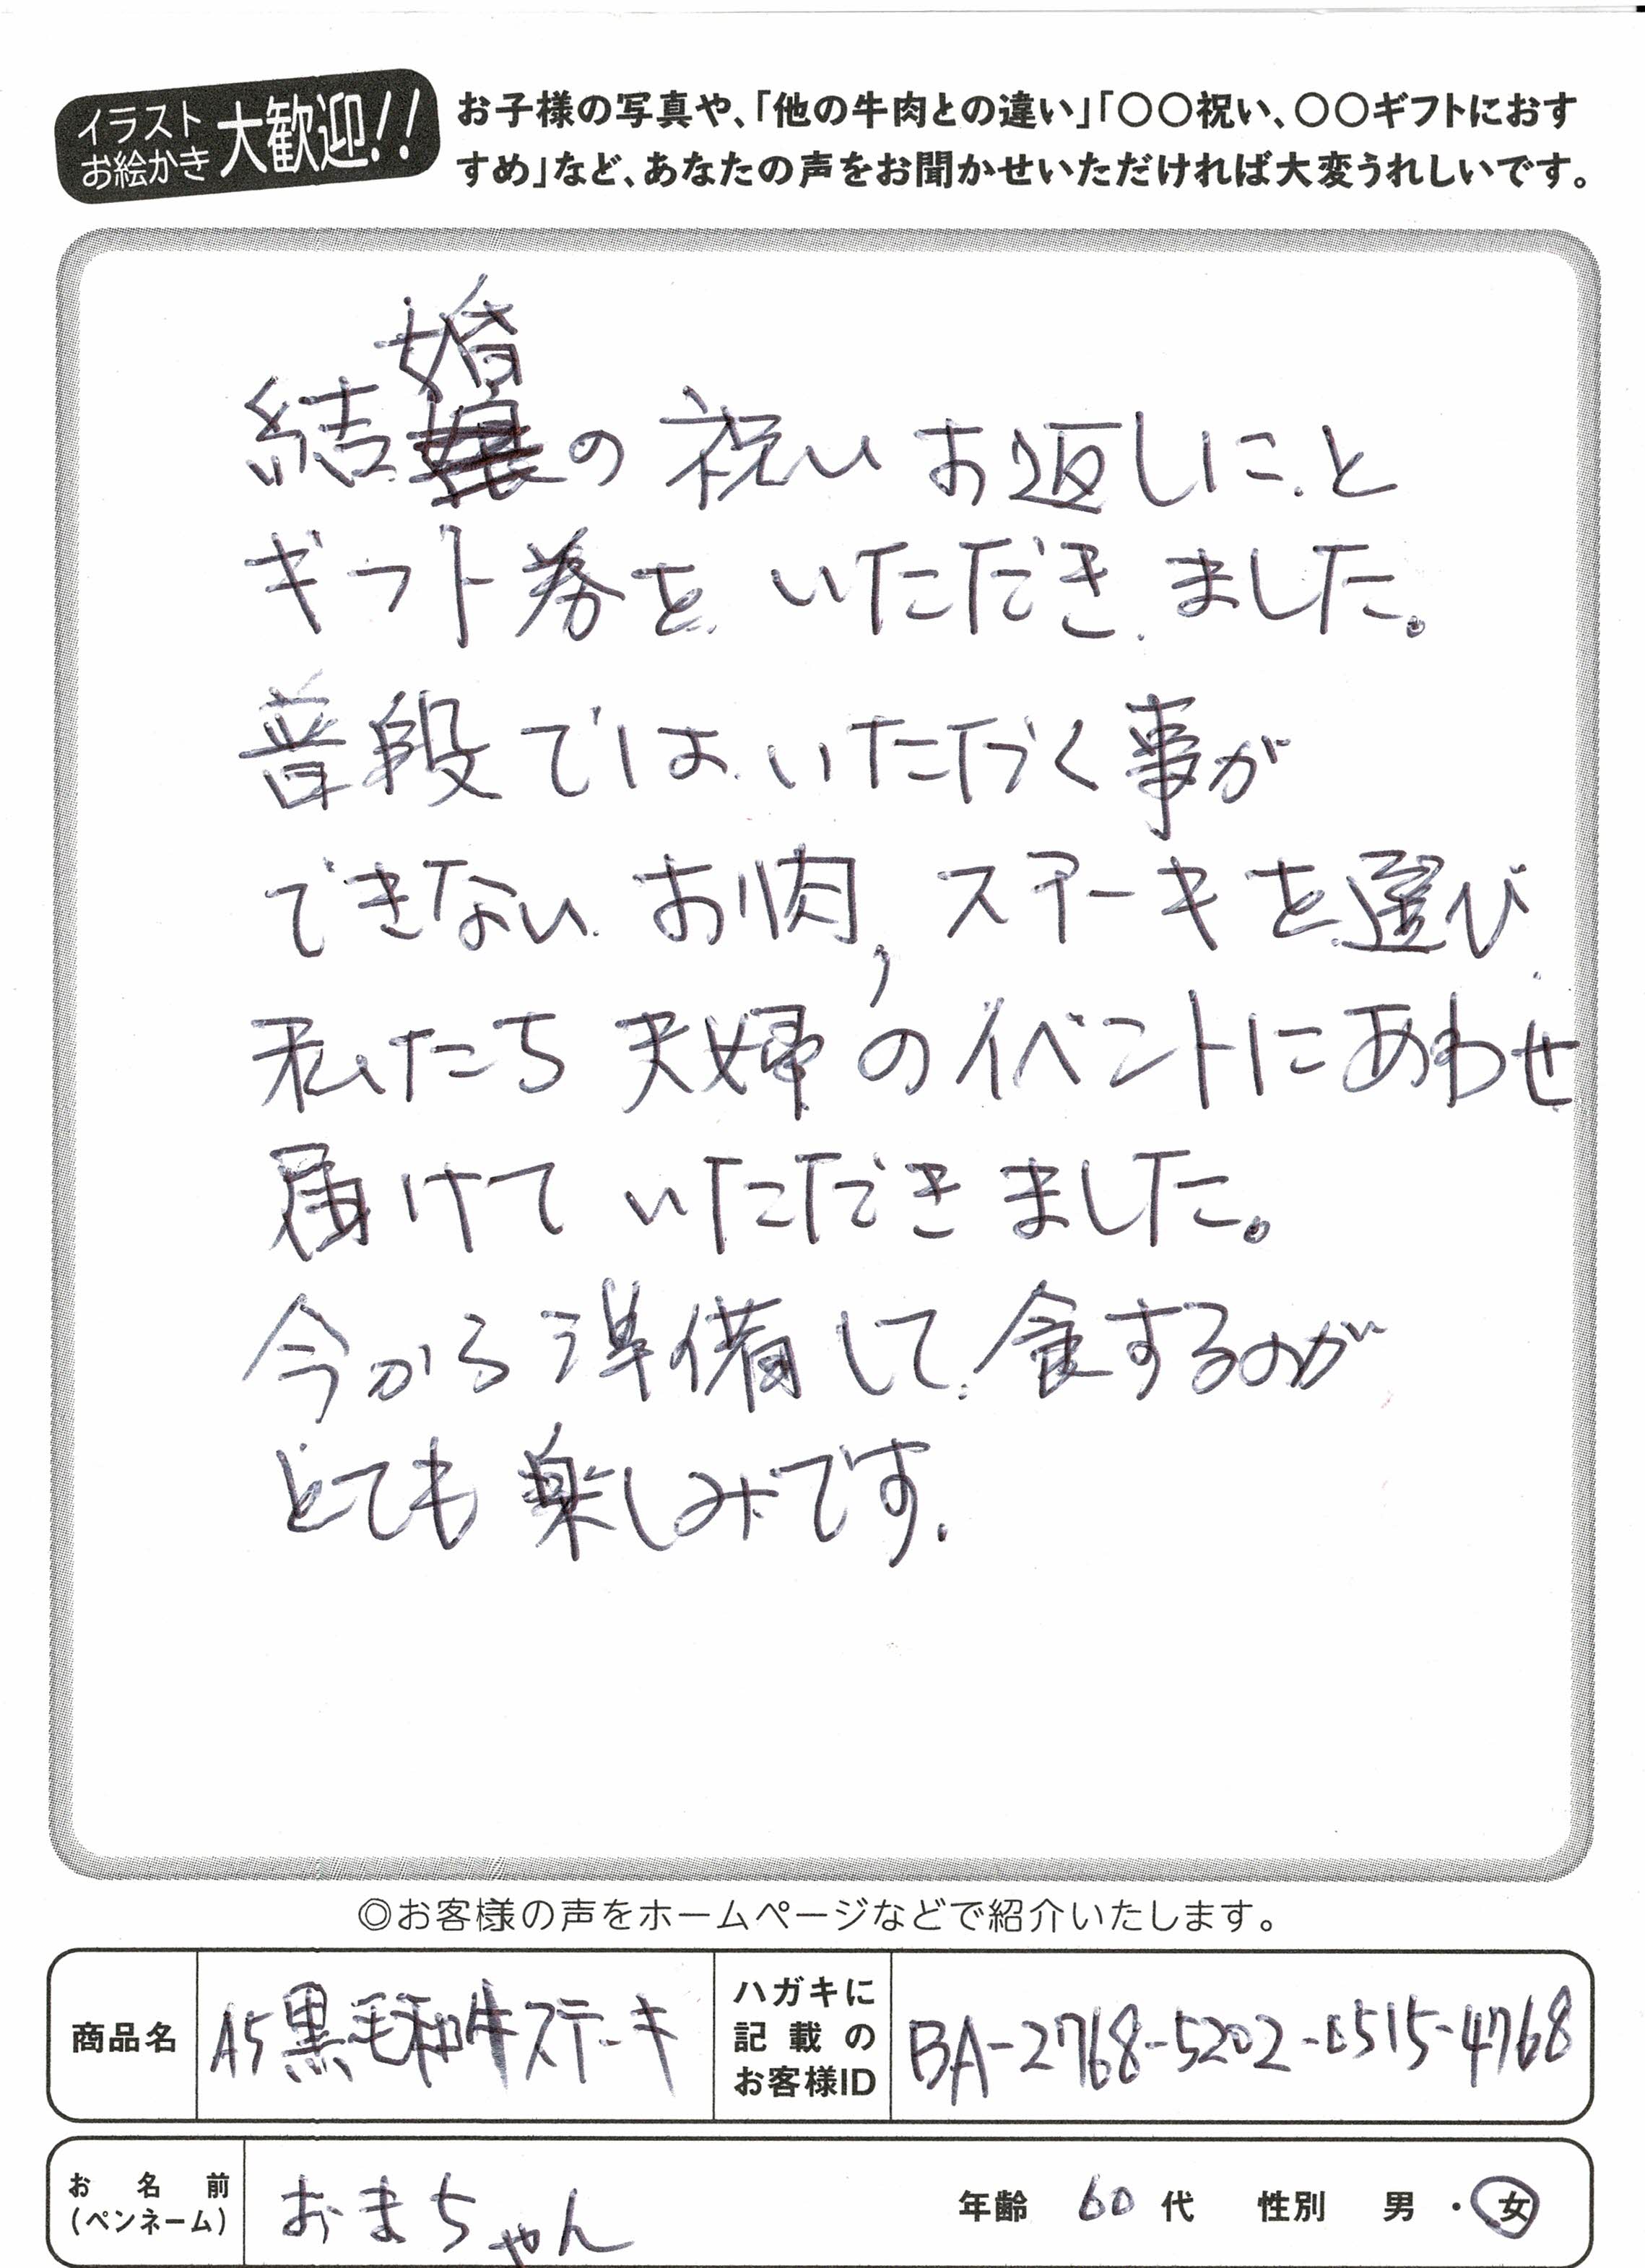 イラスト
お絵かき
大歓迎!!
お子様の写真や、「他の牛肉との違い」「〇〇祝い、〇〇ギフトにおす
すめ」など、あなたの声をお聞かせいただければ大変うれしいです。
結婚の祝いお返しにと
ギフト券をいただきました。
普段ではいただく事が
できないお肉,ステーキを選び
私たち夫婦のイベントにあわせ
届けていただきました。
今から準備して食するのが
とても楽しみです.
◎お客様の声をホームページなどで紹介いたします。
商品名
A5黒毛和牛ステーキ
ハガキに
記載の
お客様ID
BA-2768-5202-0515-4768
お名前
(ペンネーム)
おまちゃん
年齢 60 代 性別 男・女